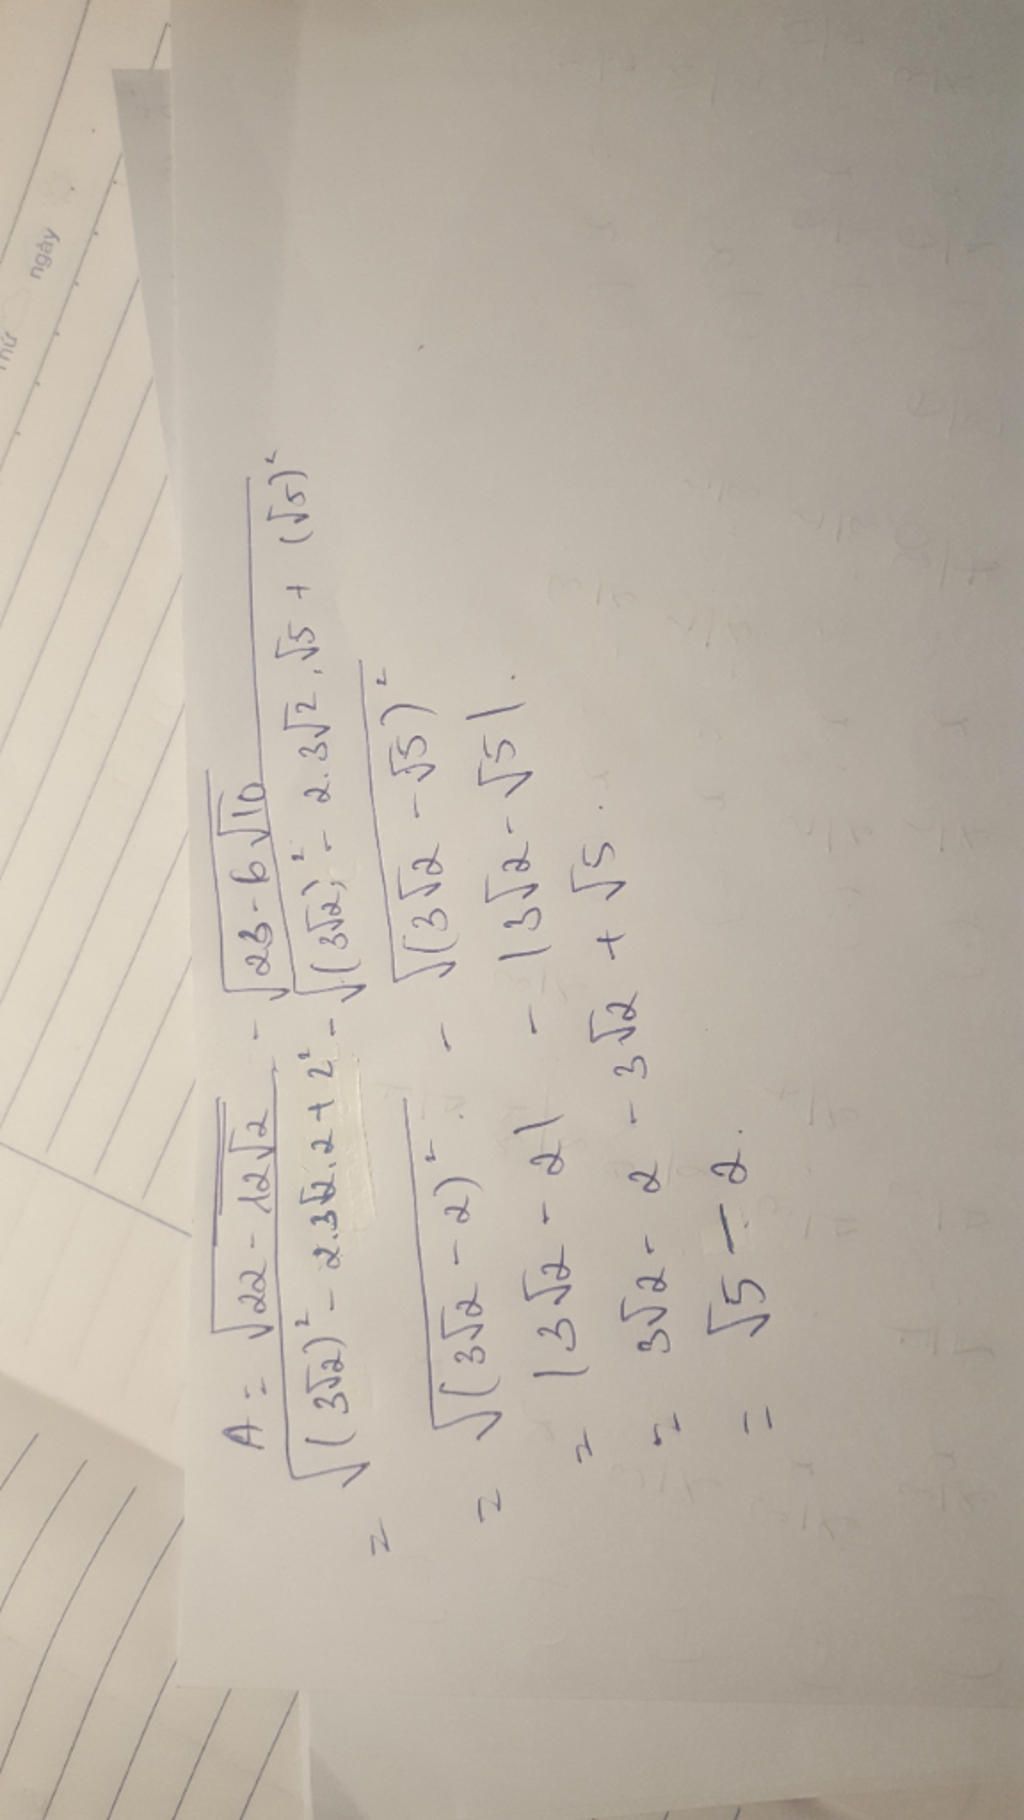 Thứ
ngày
A = √(22 - 12√2) - √(23 - 6√10)
= √((3√2)² - 2.3√2.2 + 2²) - √((3√2)² - 2.3√2.√5 + (√5)²)
= √((3√2 - 2)²) - √((3√2 - √5)²)
= |3√2 - 2| - |3√2 - √5|.
= 3√2 - 2 - 3√2 + √5.
= √5 - 2.